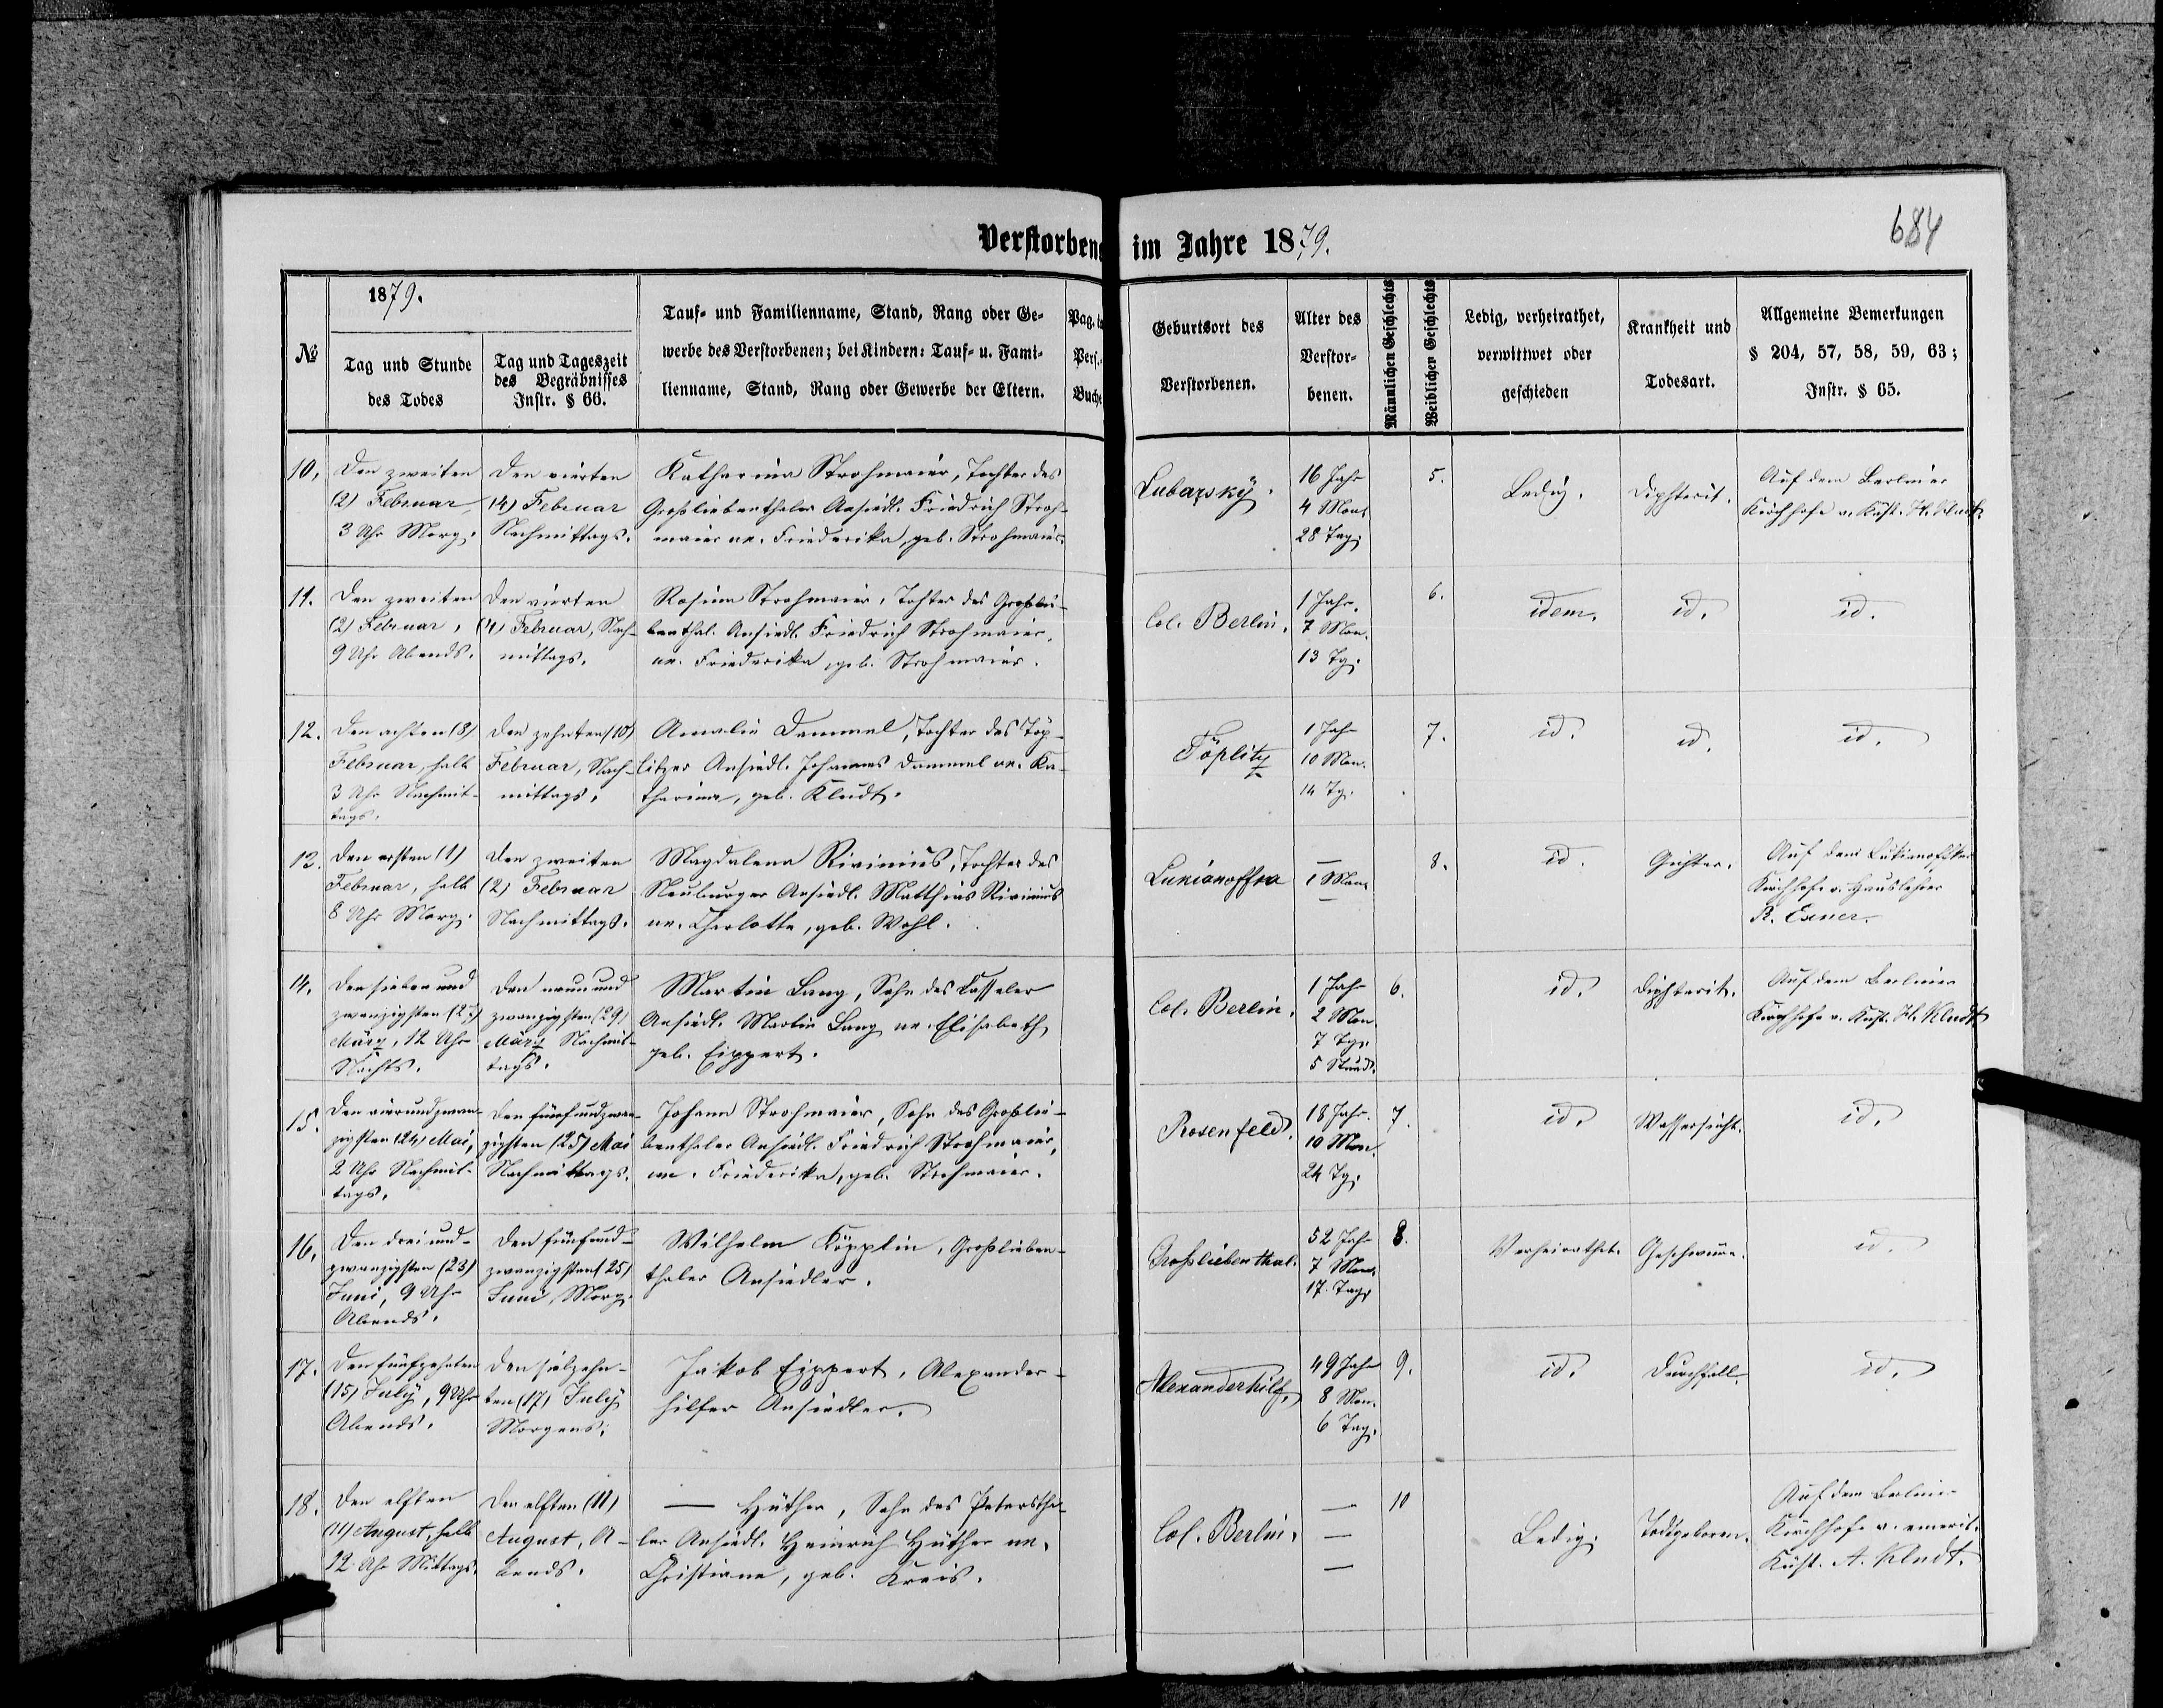 684
Verstorbene im Jahre 1879.
№
1879.
Tag und Stunde
des Todes
Tag und Tageszeit
des Begräbnisses
Instr. § 66.
Tauf- und Familienname, Stand, Rang oder Ge-
werbe des Verstorbenen; bei Kindern: Tauf- u. Fami-
lienname, Stand, Rang oder Gewerbe der Eltern.
Pag. im
Pers.-
Buche
Geburtsort des
Verstorbenen.
Alter des
Verstor-
benen.
Männlichen Geschlechts
Weiblichen Geschlechts
Ledig, verheirathet,
verwittwet oder
geschieden
Krankheit und
Todesart.
Allgemeine Bemerkungen
§ 204, 57, 58, 59, 63;
Instr. § 65.
10.
Den zweiten
(2) Februar,
3 Uhr Morg.
Den vierten
(4) Februar
Nachmittags.
Katharina Strohmaier, Tochter des
Großliebenthaler Ansiedl. Friedrich Stroh-
maier u. Friederika, geb. Strohmaier.
Lubarsky.
16 Jahr
4 Mon.
28 Tag.
5.
Ledig.
Diphterit.
Auf dem Berliner
Kirchhofe v. Küst. H. Kludt.
11.
Den zweiten
(2) Februar,
9 Uhr Abends.
Den vierten
(4) Februar, Nach-
mittags.
Rosina Strohmaier, Tochter des Großlie-
benthal. Ansiedl. Friedrich Strohmaier,
u. Friederika, geb. Strohmaier.
Col. Berlin.
1 Jahr.
7 Mon.
13 Tg.
6.
idem.
id.
id.
12.
Den achten (8)
Februar, halb
3 Uhr Nachmit-
tags.
Den zehnten (10)
Februar, Nach-
mittags.
Amalie Dammel, Tochter des Töp-
litzer Ansiedl. Johannes Dammel u. Ka-
tharina, geb. Kludt.
Töplitz
1 Jahr
10 Mon.
14 Tg.
7.
id.
id.
id.
13.
Den ersten (1)
Februar, halb
8 Uhr Morg.
Den zweiten
(2) Februar
Nachmittags.
Magdalena Rivinius, Tochter des
Neuburger Ansiedl. Matthias Rivinius
u. Charlotte, geb. Wohl.
Lukianoffka
—
1 Mon.
—
8.
id.
Gichter.
Auf dem Lukianofkaer
Kirchhofe v. Hauslehrer
R. Exner.
14.
Den sieben und
zwanzigsten (27)
März, 12 Uhr
Nachts.
Den neun und
zwanzigsten (29)
März Nachmit-
tags.
Martin Lang, Sohn des Casseler
Ansiedl. Martin Lang u. Elisabeth
geb. Eippert.
Col. Berlin.
1 Jahr
2 Mon.
7 Tg.
5 Stund.
6.
id.
Diphterit.
Auf dem Berliner
Kirchhofe v. Küst. H. Kludt
15.
Den vierundzwan-
zigsten (24) Mai,
2 Uhr Nachmit-
tags.
Den fünfundzwan-
zigsten (25) Mai
Nachmittags.
Johann Strohmaier, Sohn des Großlie-
benthaler Ansiedl. Friedrich Strohmaier,
u. Friederika, geb. Strohmaier.
Rosenfeld.
18 Jahr.
10 Mon.
24 Tg.
7.
id.
Wassersucht.
id.
16.
Den drei und-
zwanzigsten (23)
Juni, 9 Uhr
Abends.
Den fünfund-
zwanzigsten (25)
Juni, Morg.
Wilhelm Köpplin, Großlieben-
thaler Ansiedler.
Großliebenthal.
52 Jahr
7 Mon.
17. Tag.
8.
Verheirathet.
id.
17.
Den fünfzehnten
(15) July, 9 Uhr
Abends.
Den siebzehn-
ten (17) July
Morgens.
Jakob Eippert, Alexander-
hilfer Ansiedler.
Alexanderhilf.
49 Jahr
8 Mon.
6 Tag.
9.
id.
Durchfall.
id.
18.
Den elften
(11) August, halb
12 Uhr Mittags.
Den elften (11)
August, A-
bends.
— Hüther, Sohn des Peterstha-
ler Ansiedl. Heinrich Hüther u.
Christiana, geb. Kreis.
Col. Berlin.
—
—
—
10
Ledig.
Todtgeboren.
Auf dem Berliner
Kirchhofe v. emerit.
Küst. A. Kludt.